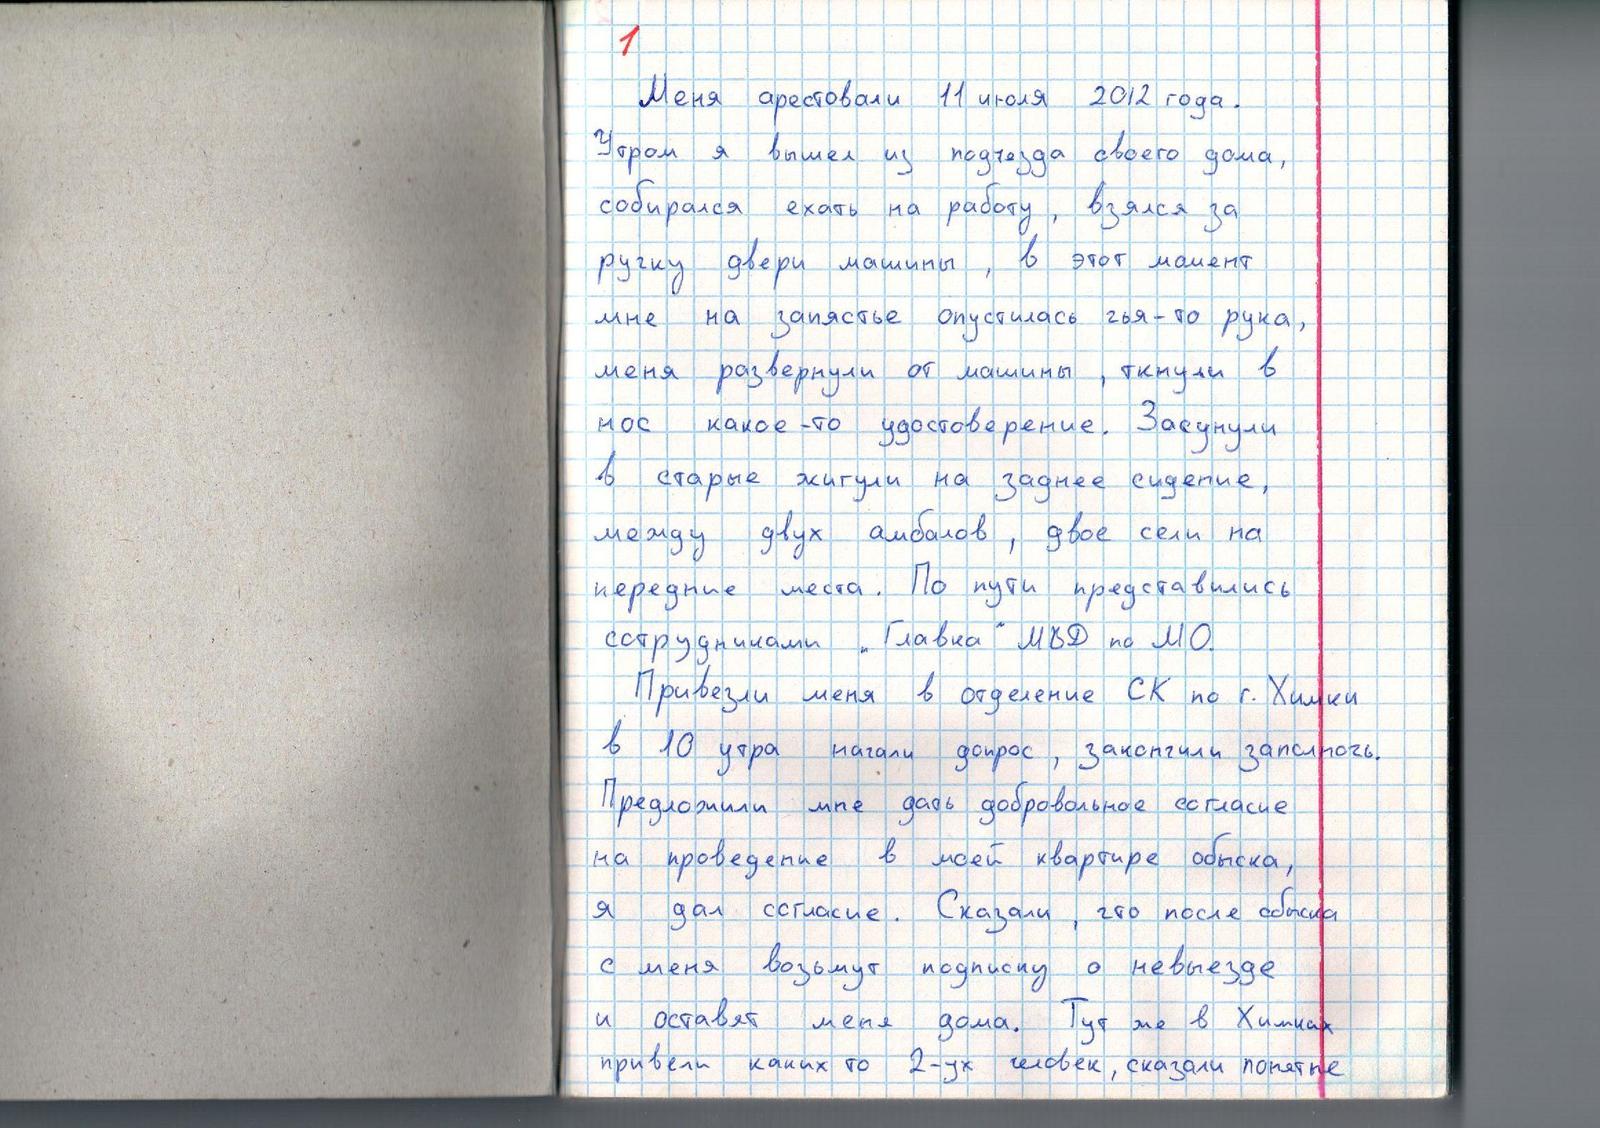 1
Меня арестовали 11 июля 2012 года.
Утром я вышел из подъезда своего дома,
собирался ехать на работу, взялся за
ручку двери машины, в этот момент
мне на запястье опустилась чья-то рука,
меня развернули от машины, ткнули в
нос какое-то удостоверение. Засунули
в старые жигули на заднее сидение,
между двух амбалов, двое сели на
передние места. По пути представились
сотрудниками „Главка“ МВД по МО.
Привезли меня в отделение СК по г. Химки
в 10 утра начали допрос, закончили заполночь.
Предложили мне дать добровольное согласие
на проведение в моей квартире обыска,
я дал согласие. Сказали, что после обыска
с меня возьмут подписку о невыезде
и оставят меня дома. Тут же в Химках
привели каких то 2-ух человек, сказали понятые